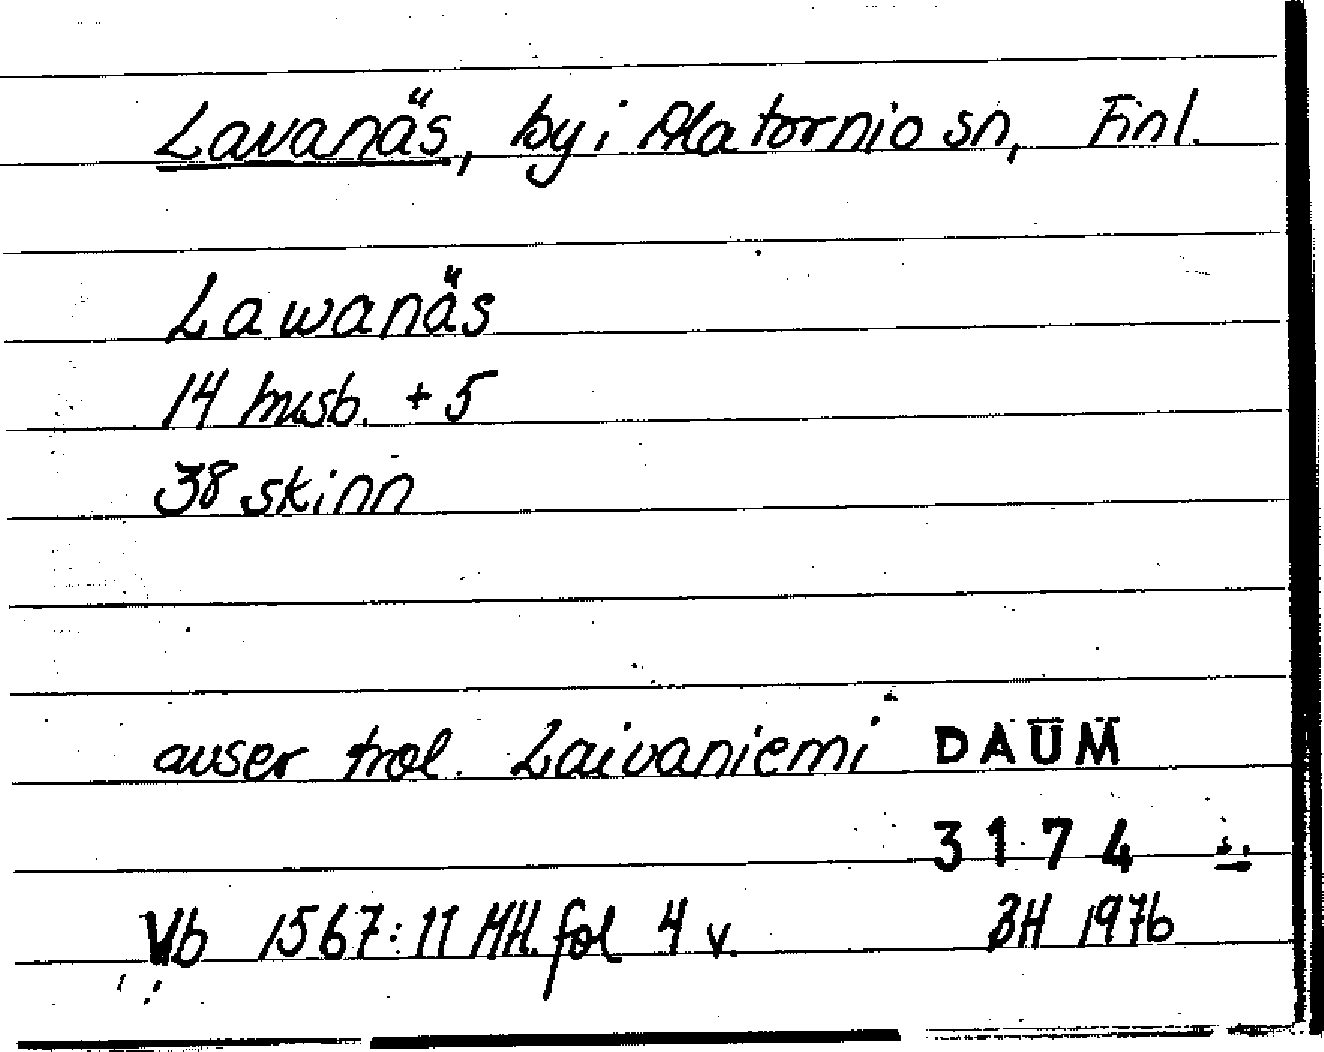 Lavanäs, by i Alatornio sn, Finl.
Lawanäs
14 husb. + 5
38 skinn
avser trol. Laivaniemi DAUM
3174
Vb 1567:11 MH. fol 4 v. BH 1976